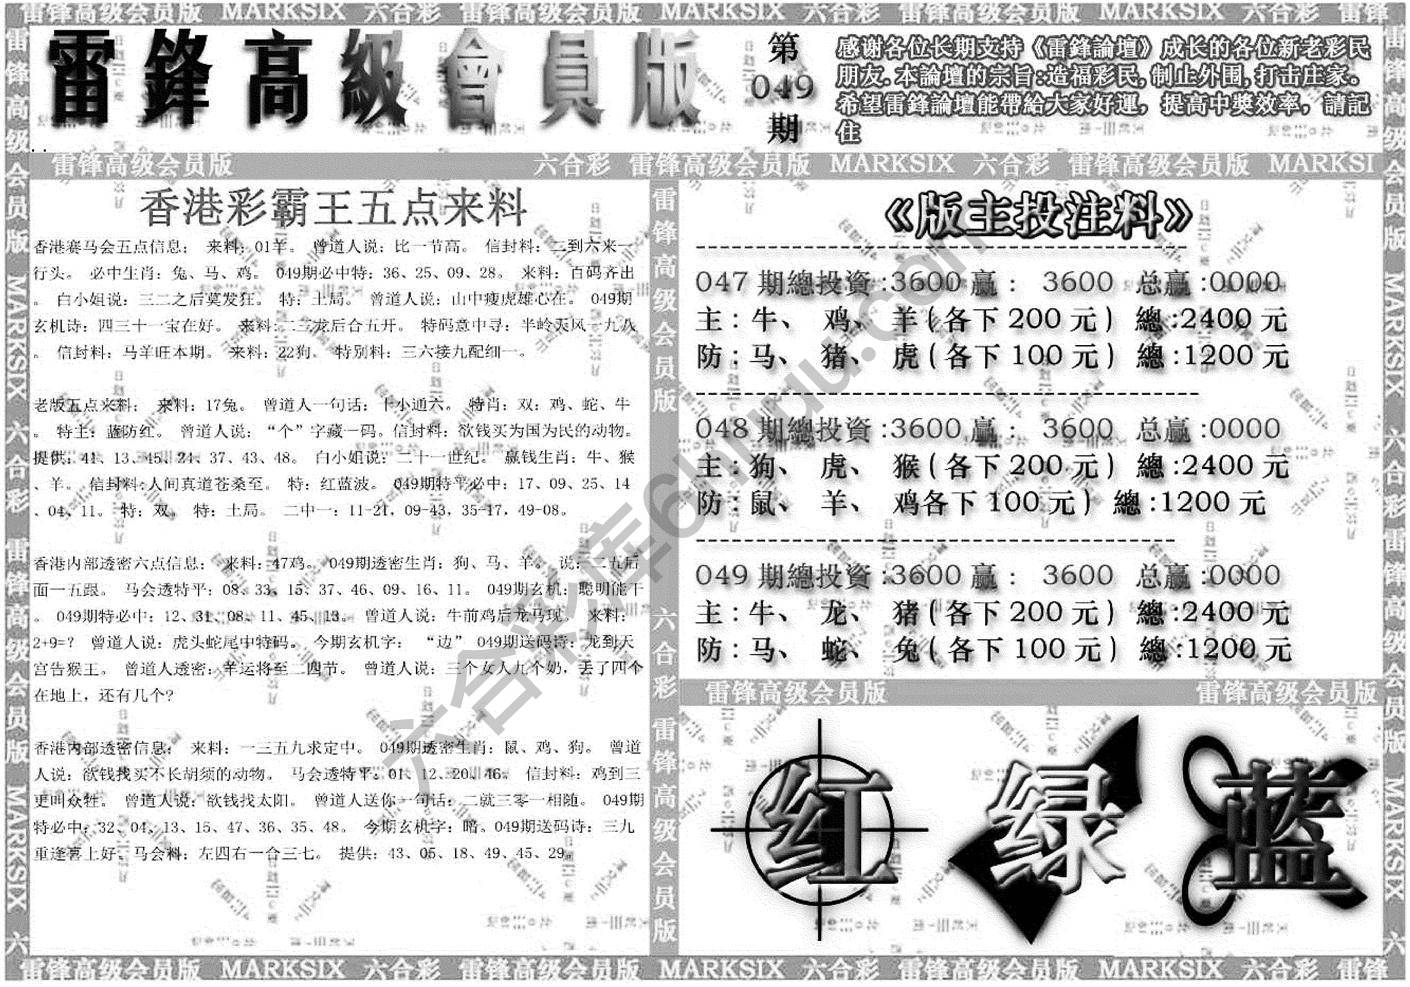 雷锋高级会员版 MARKSIX 六合彩 雷锋高级会员版 MARKSIX 六合彩 雷锋高级会员版 MARKSIX 六合彩 雷锋
雷鋒高級會員版
第
049
期
感谢各位长期支持《雷鋒論壇》成长的各位新老彩民
朋友.本論壇的宗旨:造福彩民,制止外围,打击庄家。
希望雷鋒論壇能帶給大家好運，提高中獎效率，請記
住
雷锋高级会员版 六合彩 雷锋高级会员版 MARKSIX 六合彩 雷锋高级会员版 MARKSI
香港彩霸王五点来料
香港赛马会五点信息： 来料：01羊。 曾道人说：比一节高。 信封料：二到六来一
行头。 必中生肖：兔、马、鸡。 049期必中特：36、25、09、28。 来料：百码齐出
。 白小姐说：三二之后莫发狂。 特：土局。 曾道人说：山中瘦虎雄心在。 049期
玄机诗：四三十一宝在好。 来料：二三龙后合五开。 特码意中寻：半岭天风一九八
。 信封料：马羊旺本期。 来料：22狗。 特别料：三六接九配细一。
老版五点来料： 来料：17兔。 曾道人一句话：十小通六。 特肖：双：鸡、蛇、牛
。 特主：蓝防红。 曾道人说：“个”字藏一码。信封料：欲钱买为国为民的动物。
提供：41、13、45、24、37、43、48。 白小姐说：二十一世纪。 赢钱生肖：牛、猴
、羊。 信封料:人间真道苍桑至。 特：红蓝波。 049期特平必中：17、09、25、14
、04、11。 特：双。 特：土局。 二中一：11-21，09-43，35-17，49-08。
香港内部透密六点信息： 来料：47鸡。 049期透密生肖：狗、马、羊。 说：二五后
面一五跟。 马会透特平：08、33、15、37、46、09、16、11。 049期玄机：聪明能干
。 049期特必中：12、31、08、11、45、13。 曾道人说：牛前鸡后龙马现。 来料：
2+9=？ 曾道人说：虎头蛇尾中特码。 今期玄机字： “边” 049期送码诗：龙到天
宫告猴王。 曾道人透密：羊运将至二四节。 曾道人说：三个女人九个奶，丢了四个
在地上，还有几个?
香港内部透密信息： 来料：一三五九求定中。 049期透密生肖：鼠、鸡、狗。 曾道
人说：欲钱找买不长胡须的动物。 马会透特平。01、12、20、46。 信封料：鸡到三
更叫众牲。 曾道人说：欲钱找太阳。 曾道人送你一句话：二就三零一相随。 049期
特必中：32、04、13、15、47、36、35、48。 今期玄机字：暗。049期送码诗：三九
重逢喜上好。马会料：左四右一合三七。 提供：43、05、18、49、45、29。
《版主投注料》
047 期總投資:3600 赢： 3600 总赢:0000
主：牛、 鸡、 羊(各下 200 元) 總:2400 元
防：马、 猪、 虎(各下 100 元) 總:1200 元
048 期總投資:3600 赢： 3600 总赢:0000
主：狗、 虎、 猴(各下 200 元) 總:2400 元
防：鼠、 羊、 鸡各下 100 元) 總:1200 元
049 期總投資:3600 赢： 3600 总赢:0000
主：牛、 龙、 猪(各下 200 元) 總:2400 元
防：马、 蛇、 兔(各下 100 元) 總:1200 元
雷锋高级会员版 雷锋高级会员版
红 绿 蓝
雷锋高级会员版 MARKSIX 六合彩 雷锋高级会员版 MARKSIX 六
雷锋高级会员版 六合彩 雷锋高级会员版
雷锋高级会员版 MARKSIX 六合彩 雷锋高级会员版 MARKSIX 六
雷锋高级会员版 MARKSIX 六合彩 雷锋高级会员版 MARKSIX 六合彩 雷锋高级会员版 MARKSIX 六合彩 雷锋